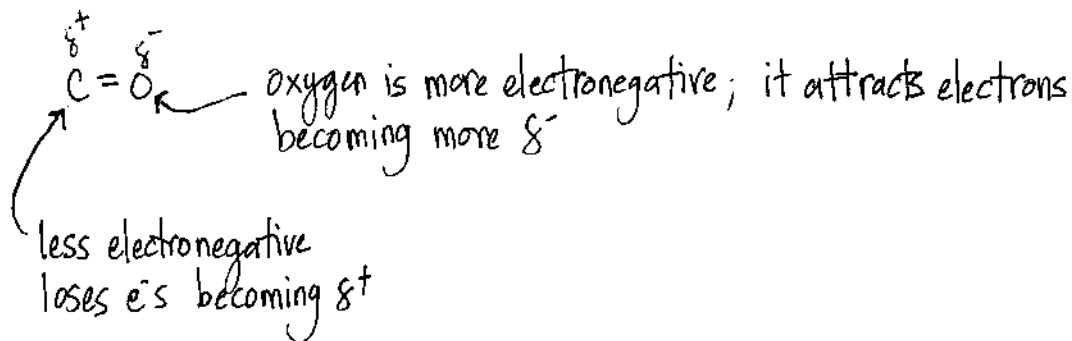 δ⁺ δ⁻
C = O
oxygen is more electronegative; it attracts electrons
becoming more δ⁻
less electronegative
loses e⁻s becoming δ⁺